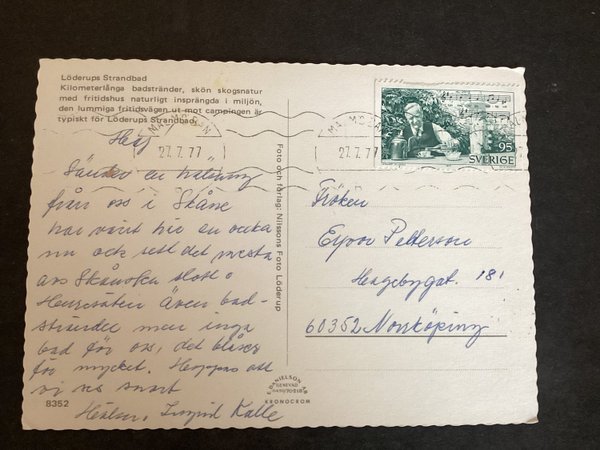 Löderups Strandbad
Kilometerlånga badstränder, skön skogsnatur
med fritidshus naturligt insprängda i miljön,
den lummiga fritidsvägen ut mot campingen är
typiskt för Löderups Strandbad.
MALMÖ BAN
27.7.77
27.7.77
95
SVERIGE
Hej
Sänder en hälsning
från oss i Skåne
har varit här en vecka
nu och sett det mesta
av Skånska slott o
Herresäten även bad-
stränder men inga
bad för oss, det blåser
för mycket. Hoppas att
vi ses snart
Hälsn. Ingrid Kalle
8352
Foto och förlag: Nilssons Foto Löderup
Fröken
Eyvor Petterson
Hagebygat. 181
60352 Norrköping
KRONOCROM